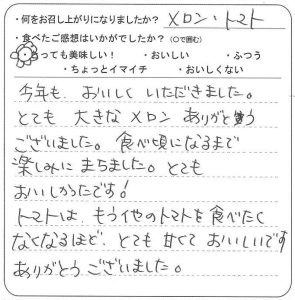 ・何をお召し上がりになりましたか？ メロン・トマト
・食べたご感想はいかがでしたか？（○で囲む）
とっても美味しい！ ・おいしい ・ふつう
・ちょっとイマイチ ・おいしくない
今年も、おいしく いただきました。
とても 大きな メロン ありがとう
ございました。食べ頃になるまで
楽しみに まちました。とても
おいしかったです！
トマトは、もう他のトマトを食べたく
なくなるほど、とても 甘くて おいしいです
ありがとう ございました。